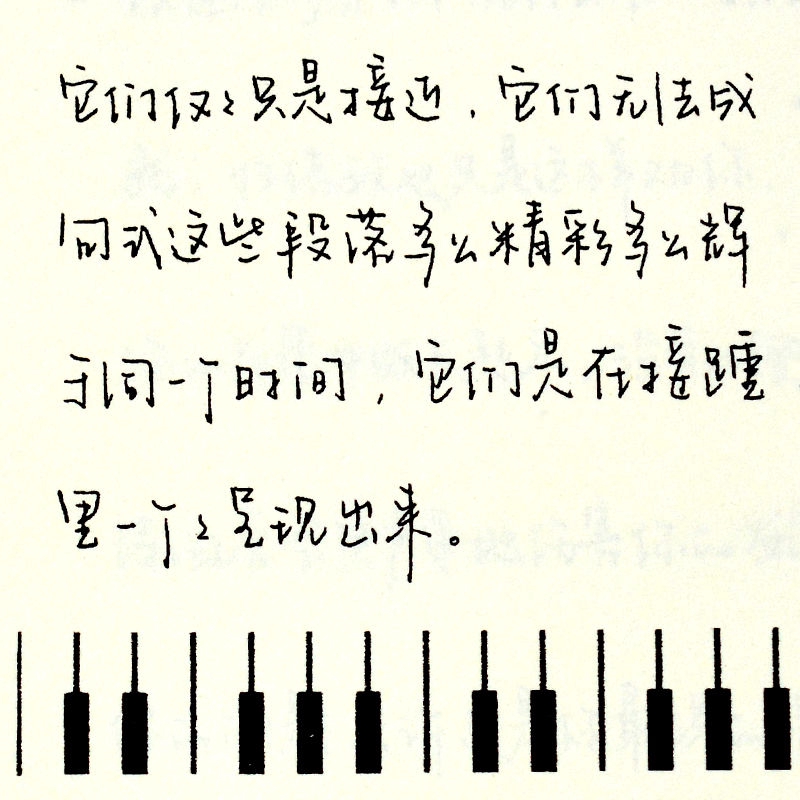 它们仅々只是接近，它们无法成
式这些段落多么精彩多么辉
于同一个时间，它们是在接踵
里一个々呈现出来。